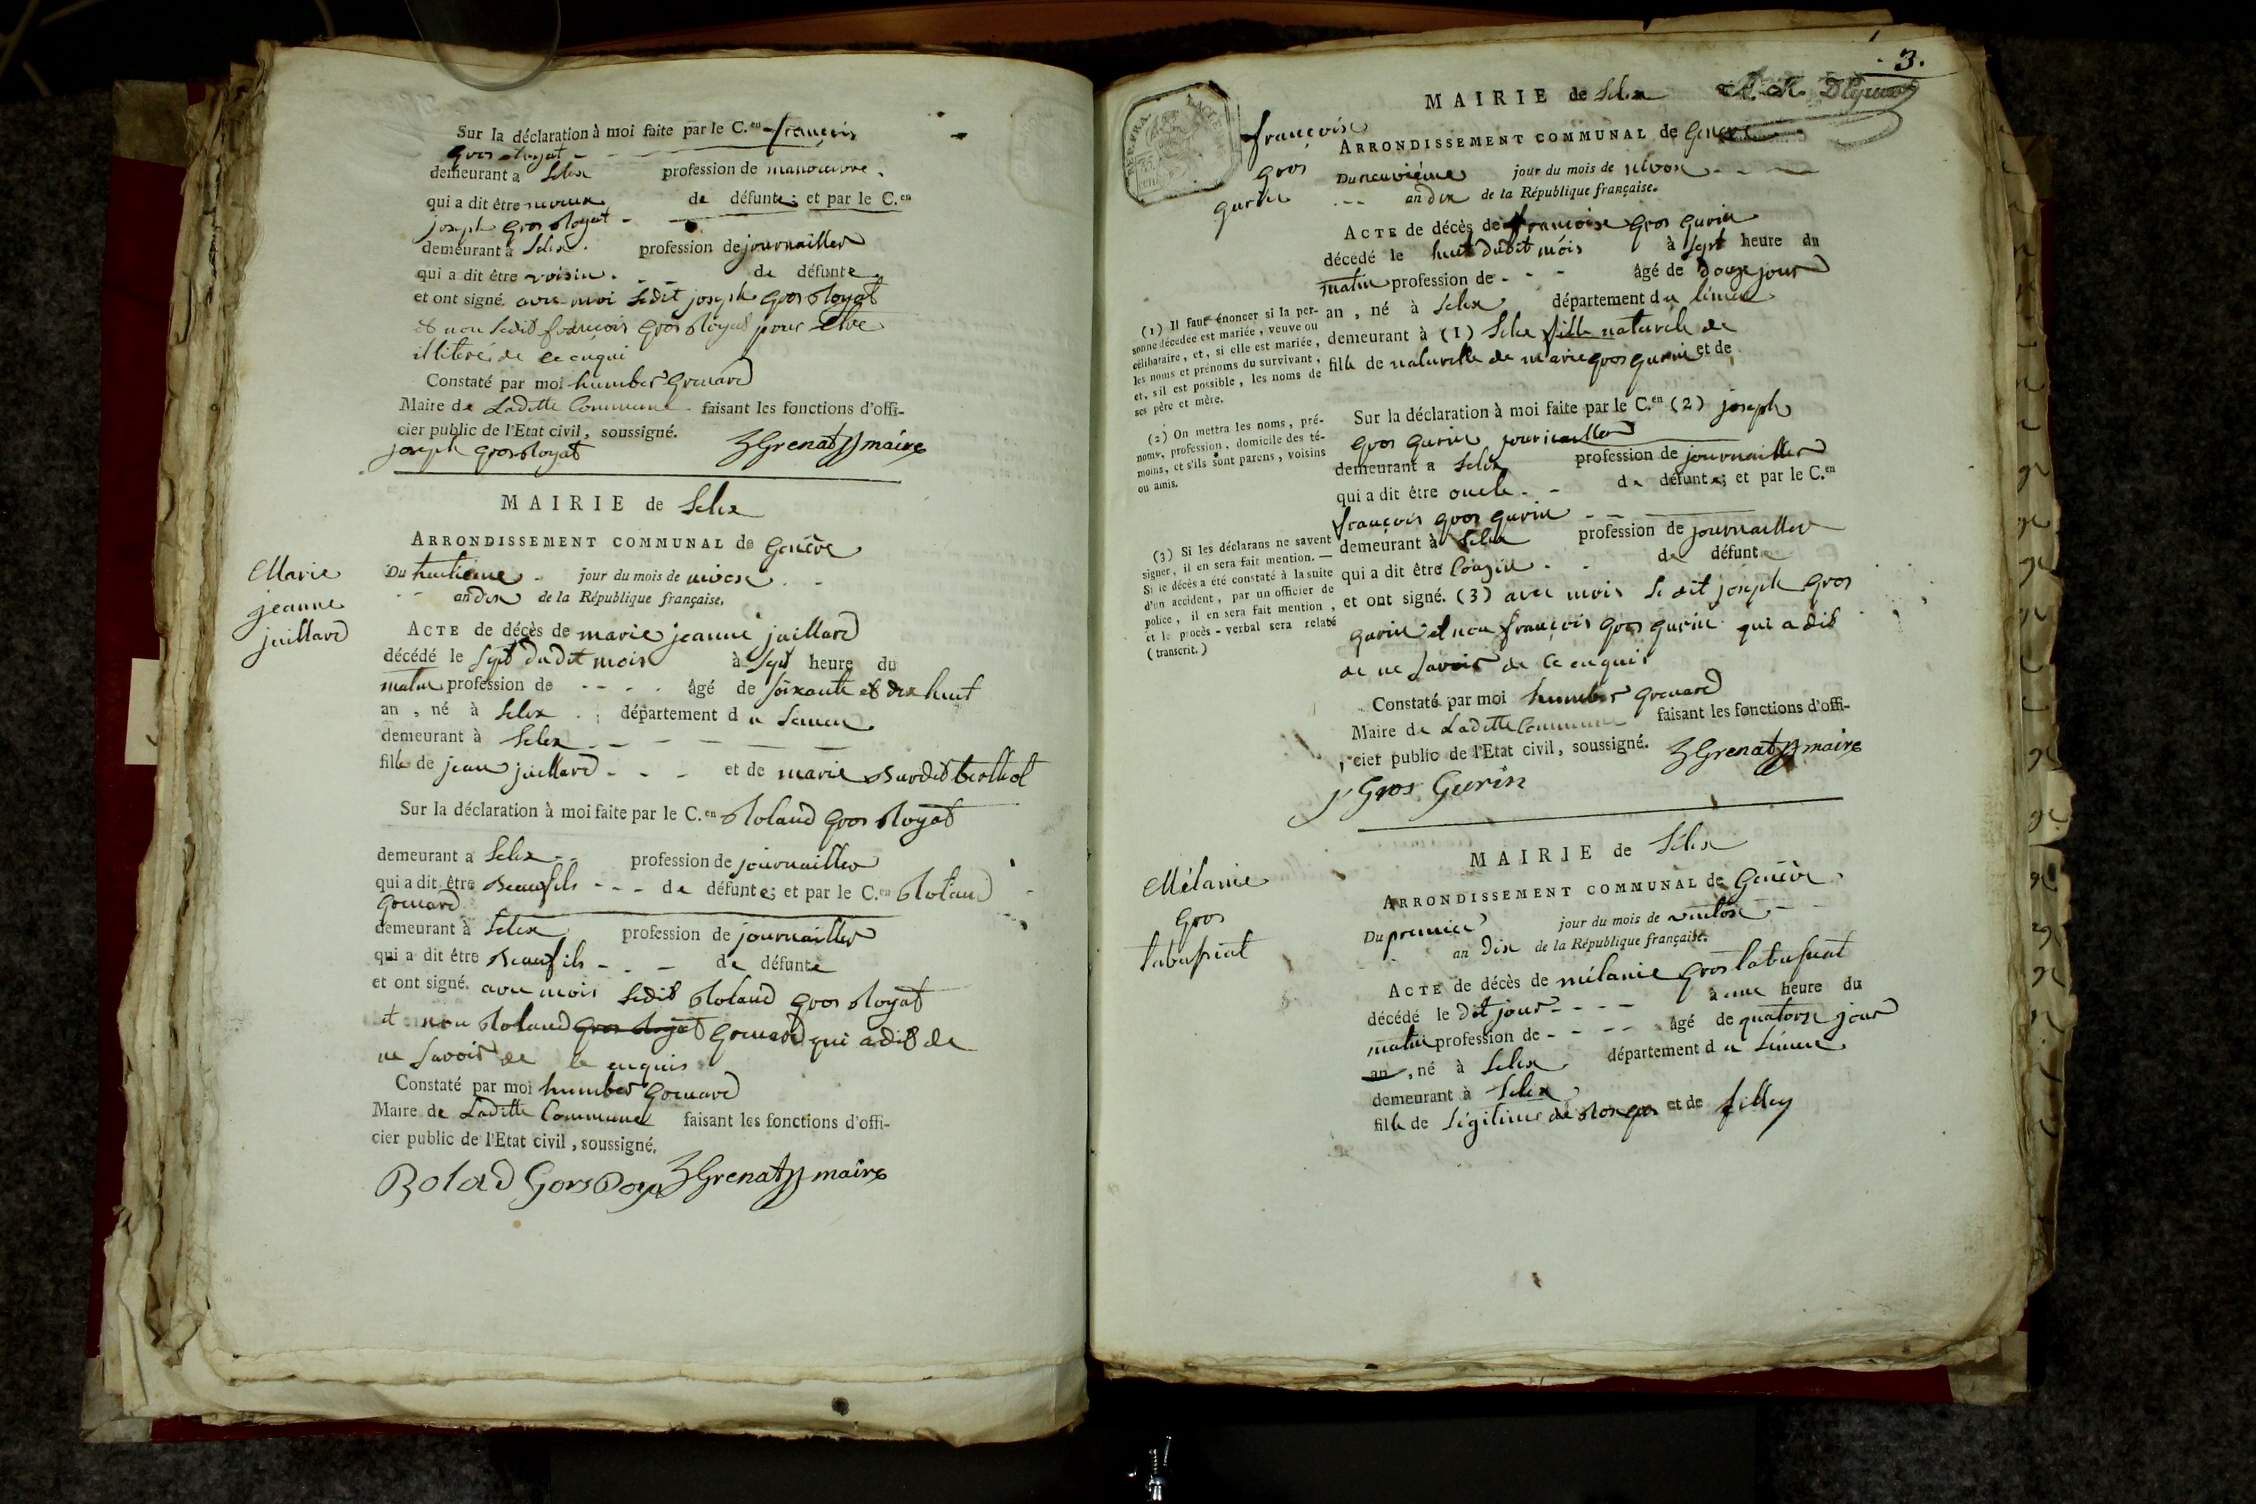 Sur la déclaration à moi faite par le C.en françois
gros Royat
demeurant a Selex profession de manoeuvre.
qui a dit être neveux de défunte; et par le C.en
joseph gros Royat
demeurant à Selex. profession de journailler
qui a dit être voisin. de défunte
et ont signé. avec moi Ledit joseph gros Royat
et non Ledit françois gros Royat pour etre
illiteré de ce enqui
Constaté par moi humber Grenard
Maire de Laditte Commune faisant les fonctions d'offi-
cier public de l'Etat civil, soussigné.
joseph grosRoyat hGrenat maire
MAIRIE de Selex
ARRONDISSEMENT COMMUNAL de Genève
Marie
jeanne
juillard
Du huitieme jour du mois de nivose
an dix de la République française.
ACTE de décès de marie jeanne juillard
décédé le sept dudit mois à sept heure du
matin profession de - - - - âgé de soixante et dix huit
an, né à Selex département du Leman
demeurant à Selex
fille de jean juillard - - - et de marie Burdet berthet
Sur la déclaration à moi faite par le C.en Roland gros Royat
demeurant a Selex profession de journailler
qui a dit être Beaufils - - - de défunte; et par le C.en Roland
Grenard
demeurant à Selex profession de journailler
qui a dit être Beaufils - - - de défunte
et ont signé. avec mois Ledit Roland gros Royat
et non Roland gros Royat Grenard qui a dit de
ne Savoir de ce enquis
Constaté par moi humber Grenard
Maire de Laditte Commune faisant les fonctions d'offi-
cier public de l'Etat civil, soussigné.
Rolad Gors Roya hGrenat maire
3.
MAIRIE de Selex
françoise
gros
gurin
ARRONDISSEMENT COMMUNAL de Genève
Du neuvième jour du mois de nivose
- - - an dix de la République française.
ACTE de décès de françoise gros gurin
décédé le huit dudit mois à sept heure du
matin profession de - - - âgé de douze jour
an, né à Selex département du léman
demeurant à (1) Selex fille naturele de
fille de naturelle de marie gros gurin et de
(1) Il faut énoncer si la per-
sonne décedée est mariée, veuve ou
célibataire, et, si elle est mariée,
les noms et prénoms du survivant,
et, s'il est possible, les noms de
ses père et mère.
Sur la déclaration à moi faite par le C.en (2) joseph
gros gurin journailler
demeurant a Selex profession de journailler
qui a dit être oncle - - de défunte; et par le C.en
françois gros gurin
demeurant à Selex profession de journailler
qui a dit être Couzin - - de défunte
et ont signé. (3) avec mois Le dit joseph gros
gurin et non françois gros gurin qui a dit
de ne Savoir de ce enquis
(2) On mettra les noms, pré-
noms, profession, domicile des té-
moins, et s'ils sont parens, voisins
ou amis.
(3) Si les déclarans ne savent
signer, il en sera fait mention. —
Si le décès a été constaté à la suite
d'un accident, par un officier de
police, il en sera fait mention,
et le procès-verbal sera relaté
(transcrit.)
Constaté par moi humber Grenard
Maire de Laditte Commune faisant les fonctions d'offi-
cier public de l'Etat civil, soussigné. hGrenat maire
j Gros Gurin
MAIRIE de Sélex
ARRONDISSEMENT COMMUNAL de Genève
Mélanie
gros
labufriat
Du premier jour du mois de ventose
an dix de la République française.
ACTE de décès de mélanie gros labufriat
décédé le dit jour - - - - à une heure du
matin profession de - - - - âgé de quatorze jour
an, né à Selex département du Léman
demeurant à Selex
fille de Légitime de et de filley